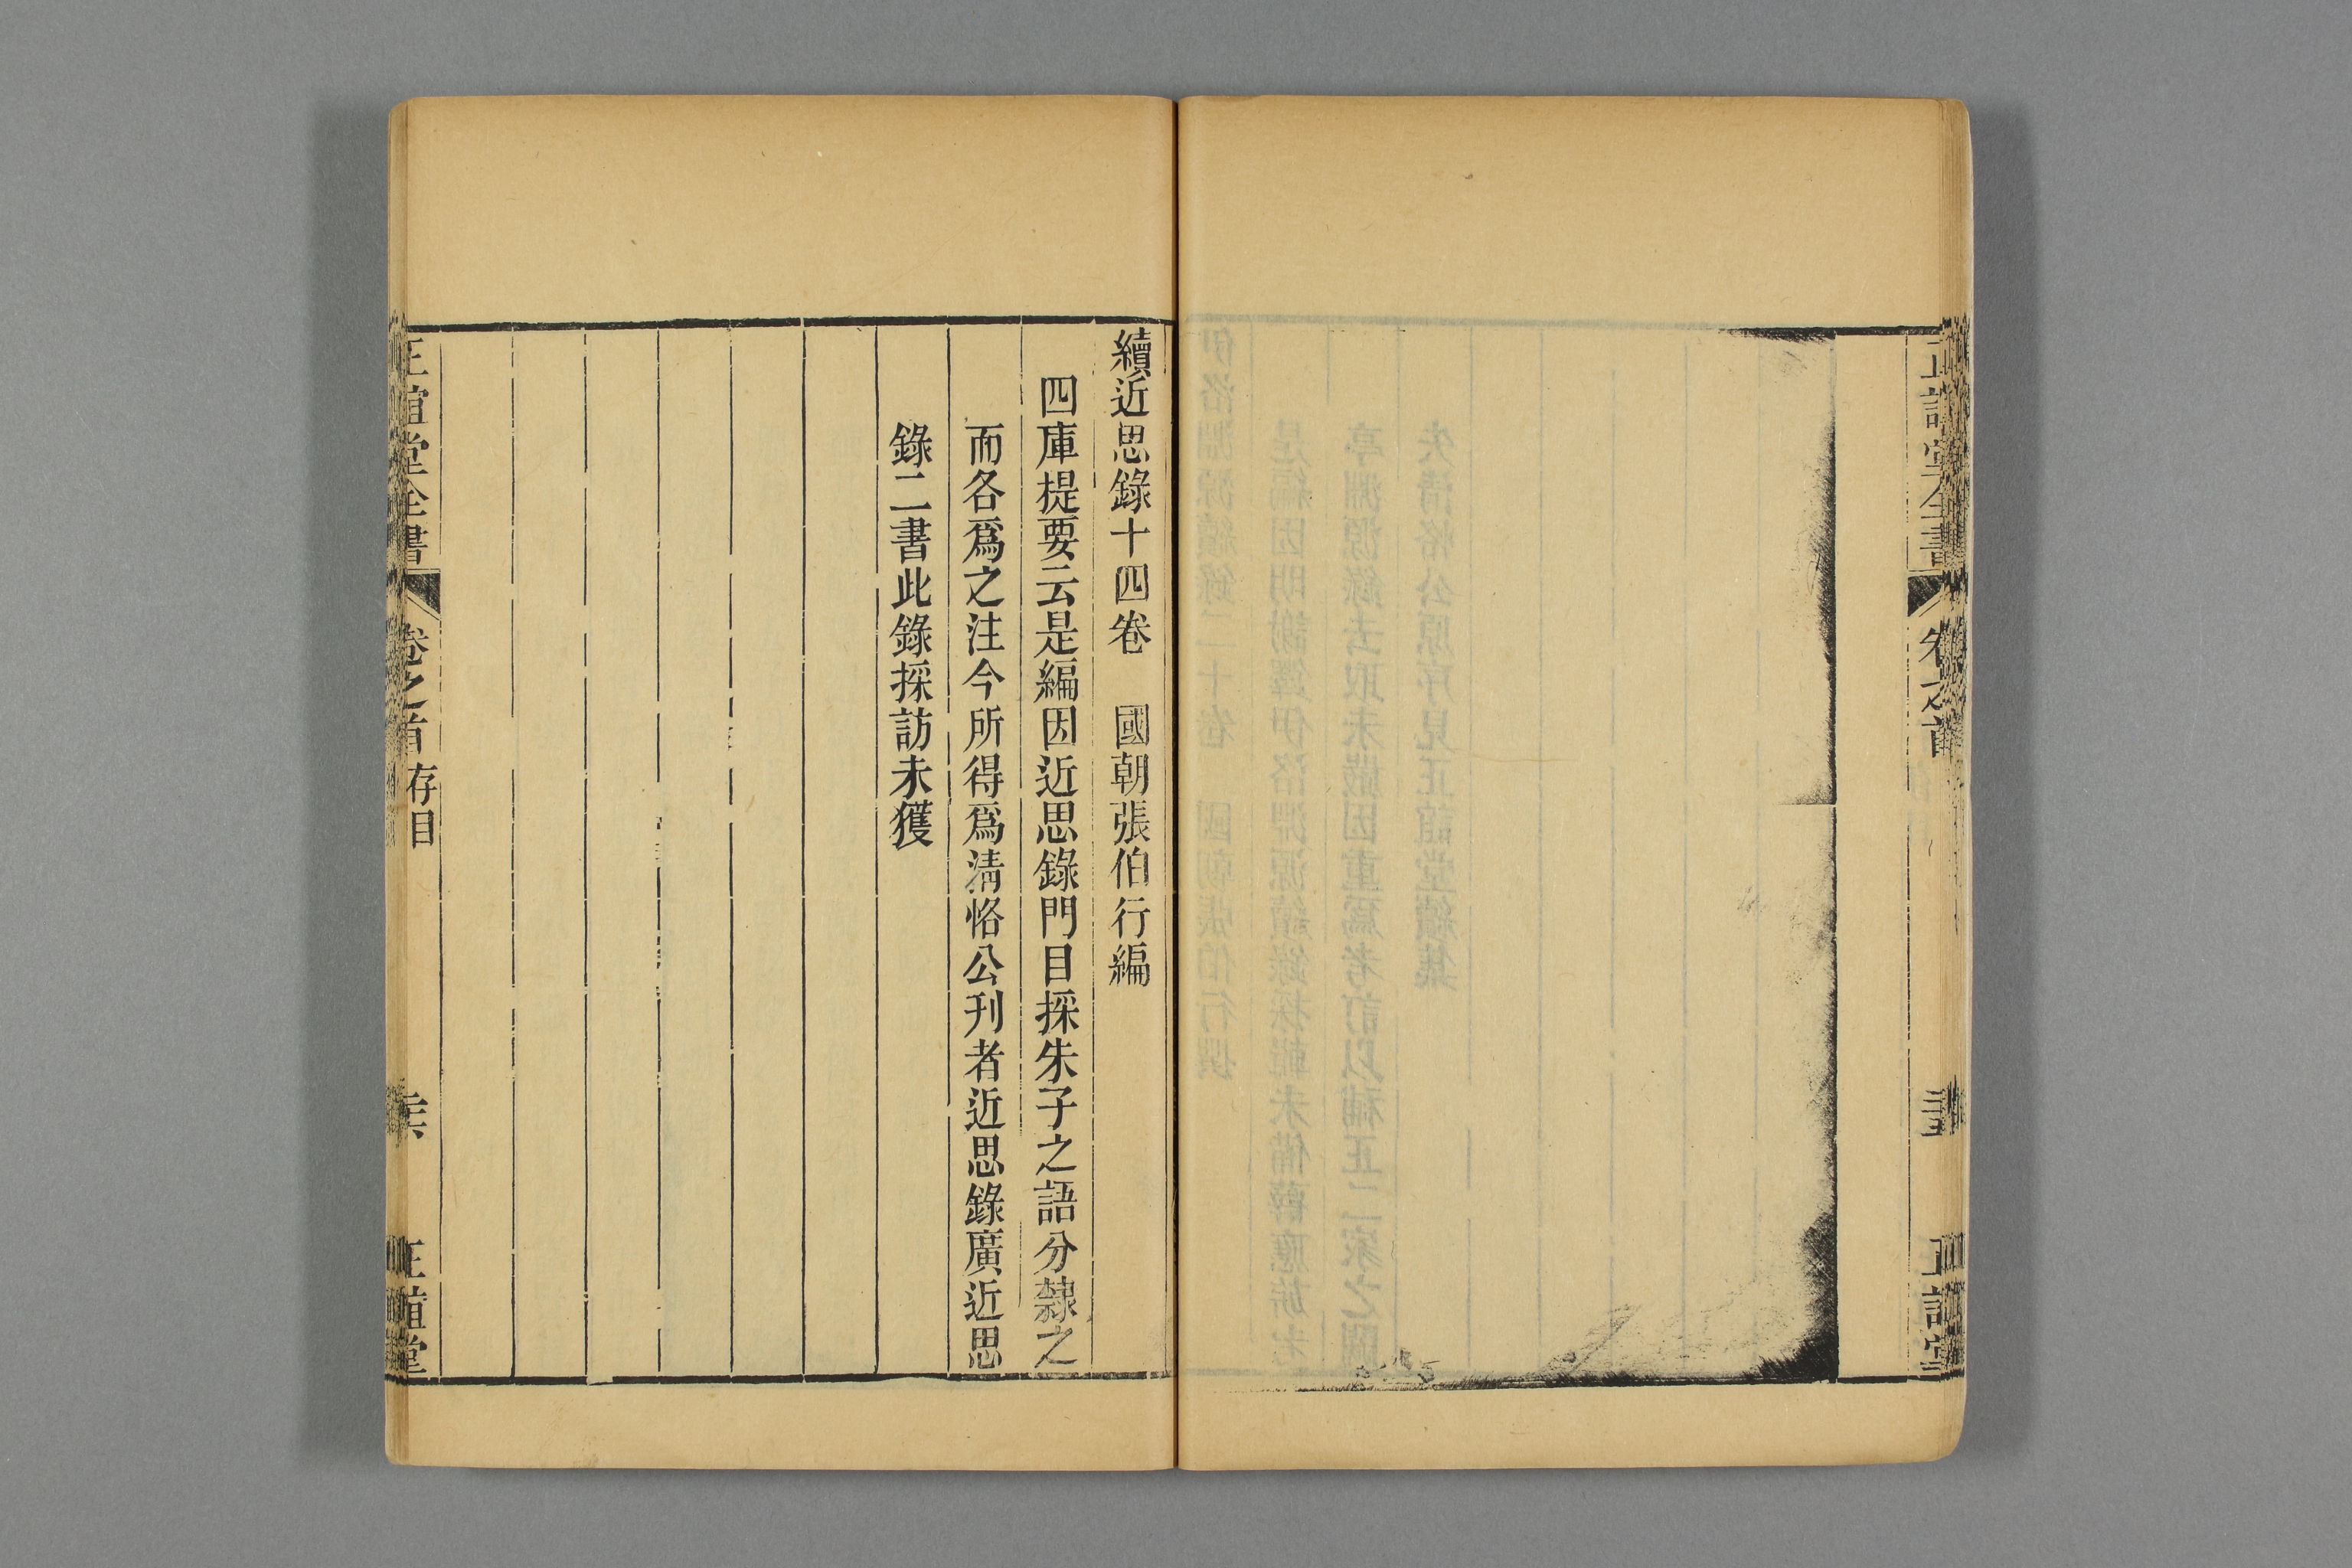 正誼堂全書
卷之首
正誼堂
續近思錄十四卷　國朝張伯行編
四庫提要云是編因近思錄門目採朱子之語分隸之
而各爲之注今所得爲淸恪公刊者近思錄廣近思
錄二書此錄採訪未獲
正誼堂全書
卷之首
存目
正誼堂